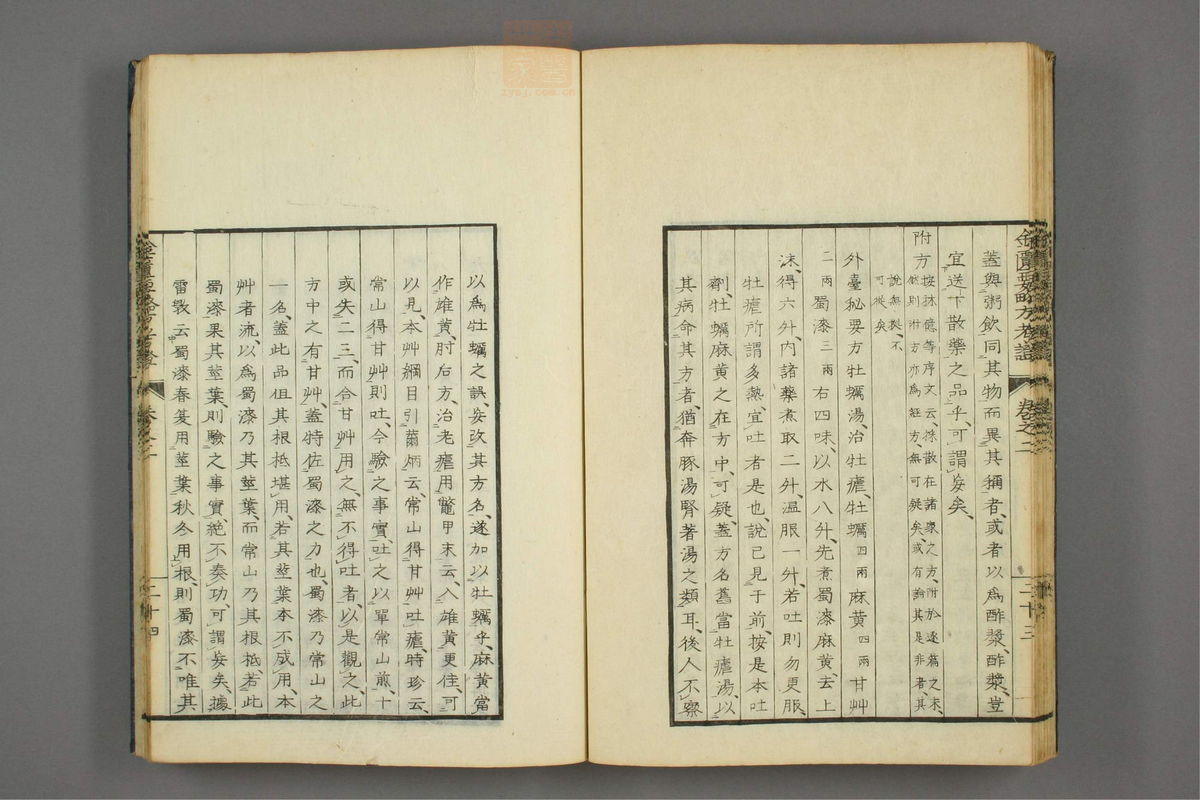 蓋與粥飲同其物而異其稱者、或者以爲酢漿、酢漿豈
宜送下散藥之品乎、可謂妄矣、
附方按林億等序文云、採散在諸家之方、附於逐篇之末、
然則附方亦爲經方、無可疑矣、或有論其是非者、其
說無據、不
可從矣、
外臺秘要方牡蠣湯、治牡瘧、牡蠣四兩麻黃四兩甘艸
二兩蜀漆三兩右四味、以水八升、先煮蜀漆麻黃、去上
沫、得六升、內諸藥煮取二升、溫服一升、若吐則勿更服、
牡瘧所謂多熱、宜吐者是也、說已見于前、按是本吐
劑、牡蠣麻黃之在方中、可疑、蓋方名舊當牡瘧湯、以
其病命其方者、猶奔豚湯腎著湯之類耳、後人不察
以爲牡蠣之誤、妄改其方名、遂加以牡蠣乎、麻黃當
作雄黃、肘后方、治老瘧用鼈甲末云、入雄黃更佳、可
以見、本艸綱目引藺炳云、常山得甘艸吐瘧、時珍云、
常山得甘艸則吐、今驗之事實、吐之以單常山煎、十
或失二三、而合甘艸用之、無不得吐者、以是觀之、此
方中之有甘艸、蓋特佐蜀漆之力也、蜀漆乃常山之
一名、蓋此品但其根柢堪用、若其莖葉本不成用、本
艸者流、以爲蜀漆乃其莖葉、而常山乃其根柢、若此
蜀漆果其莖葉、則驗之事實、絕不奏功、可謂妄矣、據
雷斅云、蜀漆春夏用莖葉、秋冬用根、則蜀漆不唯其
金匱要略方考證
卷之二
二十三
卷之二
二十四
zysj.com.cn